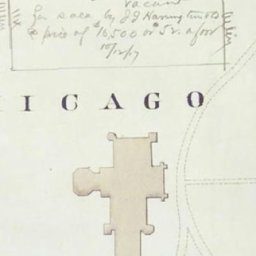 vacant
for sale by JJ Harrington & Co
price of $16,500 or 52. a foot
10/12/17
ICAGO